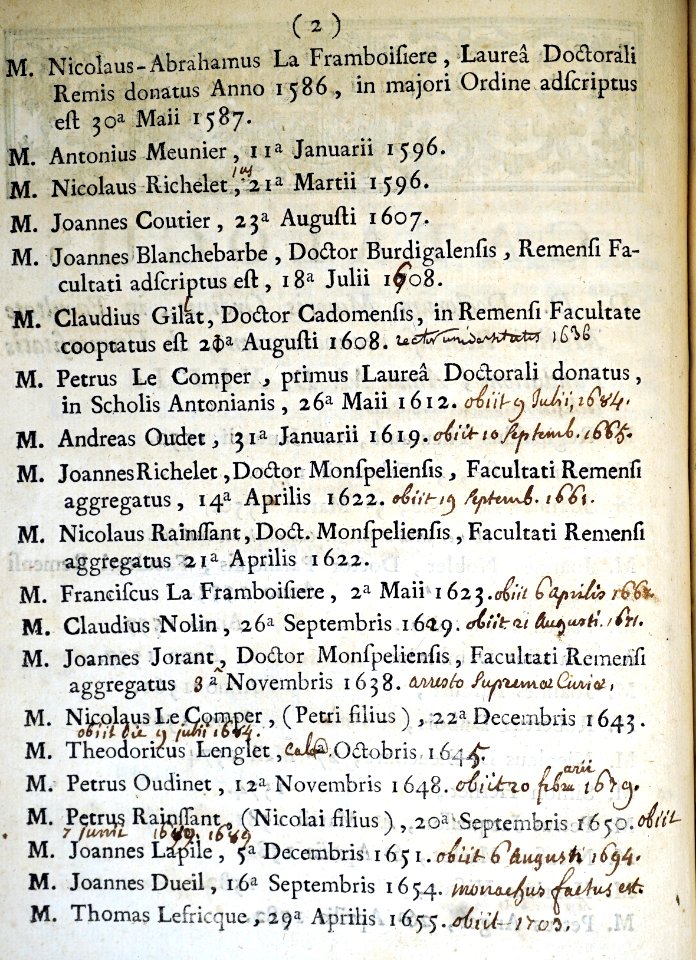 ( 2 )
M. Nicolaus-Abrahamus La Framboisiere, Laureâ Doctorali
Remis donatus Anno 1586, in majori Ordine adscriptus
est 30ª Maii 1587.
M. Antonius Meunier, 11ª Januarii 1596.
M. Nicolaus Richelet, 21ª Martii 1596.
M. Joannes Coutier, 23ª Augusti 1607.
M. Joannes Blanchebarbe, Doctor Burdigalensis, Remensi Fa-
cultati adscriptus est, 18ª Julii 1608.
M. Claudius Gilat, Doctor Cadomensis, in Remensi Facultate
cooptatus est 21ª Augusti 1608. rector universitatis 1636
M. Petrus Le Comper, primus Laureâ Doctorali donatus,
in Scholis Antonianis, 26ª Maii 1612. obiit 9 Julii, 1684.
M. Andreas Oudet, 31ª Januarii 1619. obiit 10 Septemb. 1665.
M. Joannes Richelet, Doctor Monspeliensis, Facultati Remensi
aggregatus, 14ª Aprilis 1622. obiit 19 Septemb. 1661.
M. Nicolaus Rainssant, Doct. Monspeliensis, Facultati Remensi
aggregatus 21ª Aprilis 1622.
M. Franciscus La Framboisiere, 2ª Maii 1623. obiit 6 aprilis
M. Claudius Nolin, 26ª Septembris 1629. obiit 21 Augusti. 1671.
M. Joannes Jorant, Doctor Monspeliensis, Facultati Remensi
aggregatus 8ª Novembris 1638. arresto Supremæ Curiæ,
M. Nicolaus Le Comper, (Petri filius), 22ª Decembris 1643.
obiit die 9 julii 1684.
M. Theodoricus Lenglet, Octobris 1645.
M. Petrus Oudinet, 12ª Novembris 1648. obiit 20 febru arii 1679.
M. Petrus Rainssant, (Nicolai filius), 20ª Septembris 1650. obiit
7 Junii 1689
M. Joannes Lapile, 5ª Decembris 1651. obiit 6 Augusti 1694.
M. Joannes Dueil, 16ª Septembris 1654. monachus factus est.
M. Thomas Lefricque, 29ª Aprilis 1655. obiit 1703.